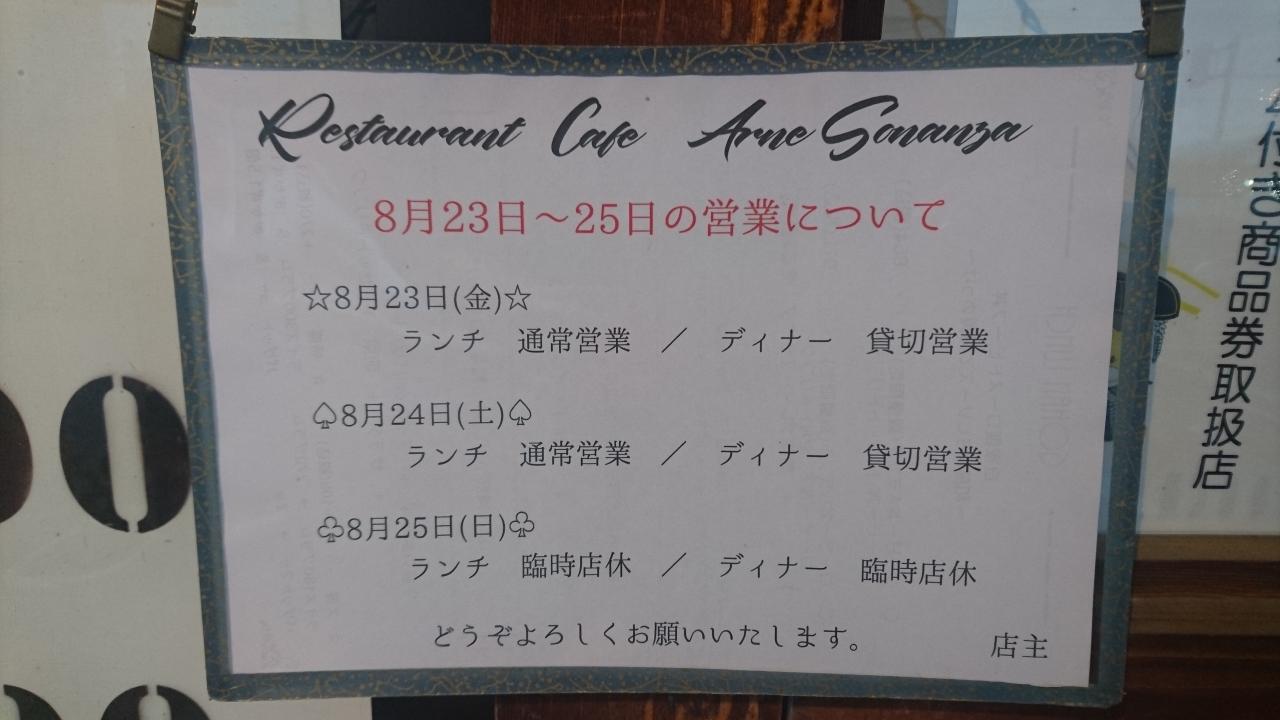 Restaurant Cafe Arne Sonanza
8月23日～25日の営業について
☆8月23日(金)☆
ランチ　通常営業　／　ディナー　貸切営業
♤8月24日(土)♤
ランチ　通常営業　／　ディナー　貸切営業
♧8月25日(日)♧
ランチ　臨時店休　／　ディナー　臨時店休
どうぞよろしくお願いいたします。　店主
付き商品券取扱店